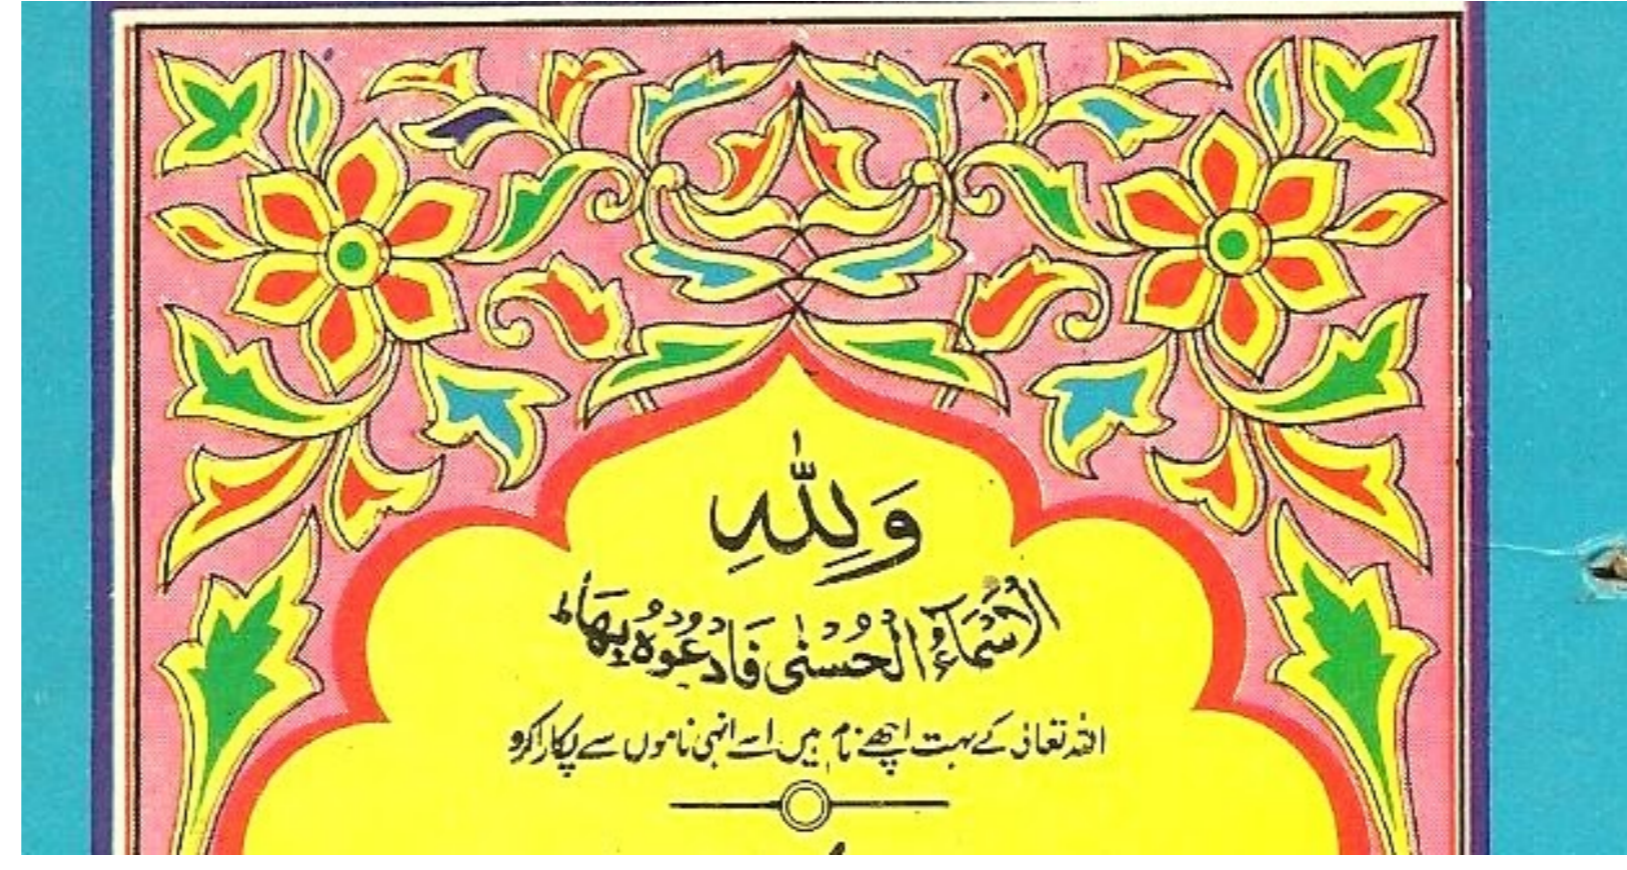 وَلِلّٰهِ
الْاَسْمَآءُ الْحُسْنٰى فَادْعُوْهُ بِهَا ط
اللہ تعالیٰ کے بہت اچھے نام ہیں اسے انہی ناموں سے پکارا کرو